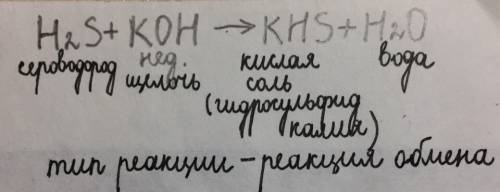 H₂S + KOH → KHS + H₂O
сероводород нед. щелочь кислая соль вода
(гидросульфид
калия)
тип реакции – реакция обмена